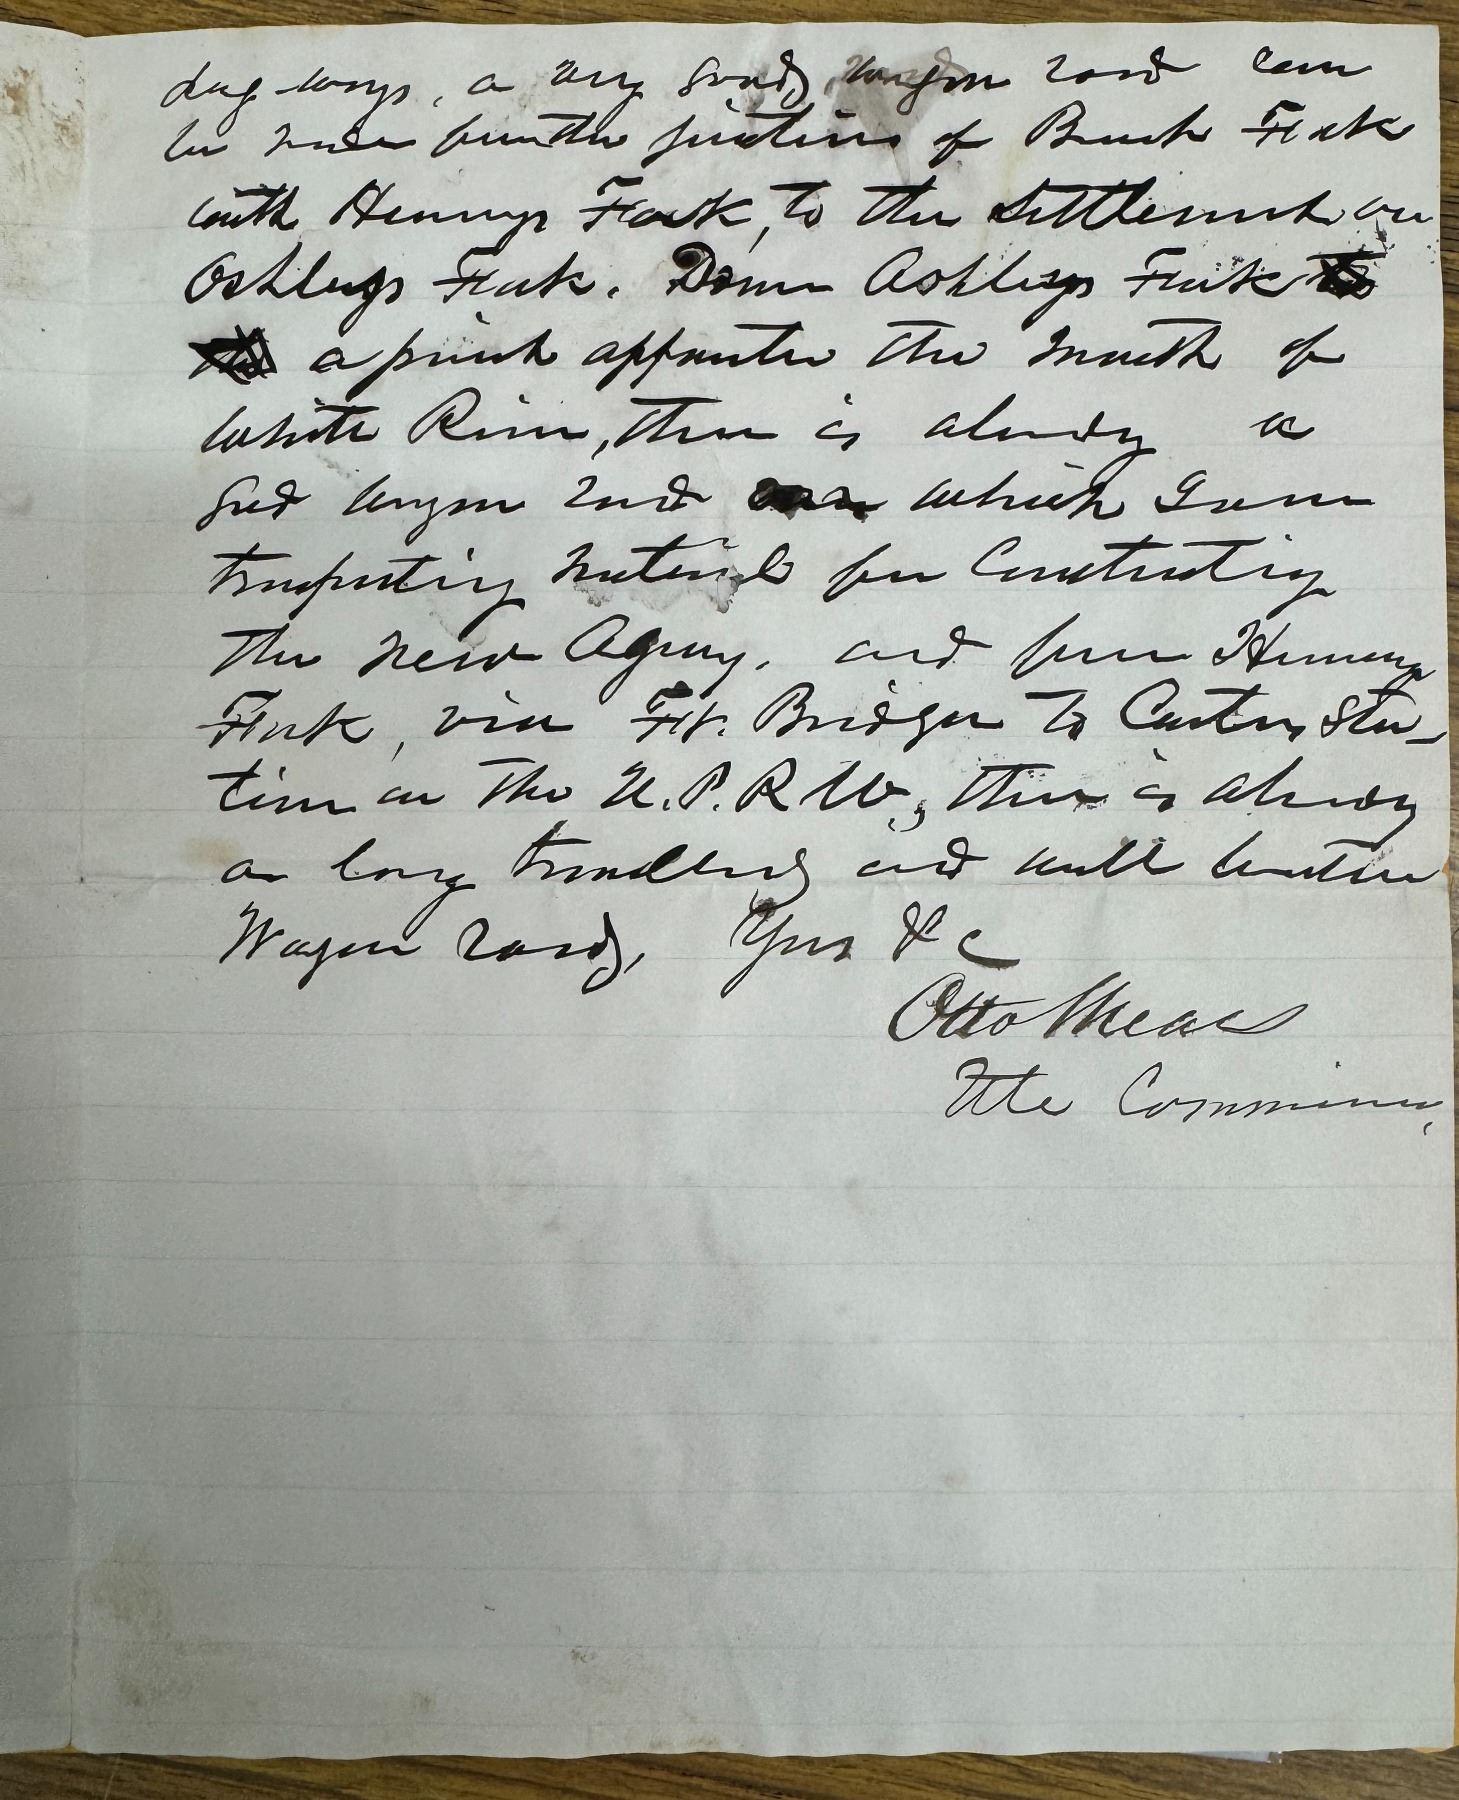 dug ways, a very good, wagon road can
be made from the junction of Burnt Fork
with Henrys Fork, to the settlement on
Ashleys Fork. Down Ashleys Fork
a point opposite the mouth of
White River, there is already a
good wagon road which
transporting material for Constructing
the new Agency. and from Henrys
Fork, via Ft. Bridger to Carter, Sta-
tion on the U.P.R.W., there is already
a long travelled and well beaten
Wagon road, Yours &c
Otto Mears
Ute Commissioner,